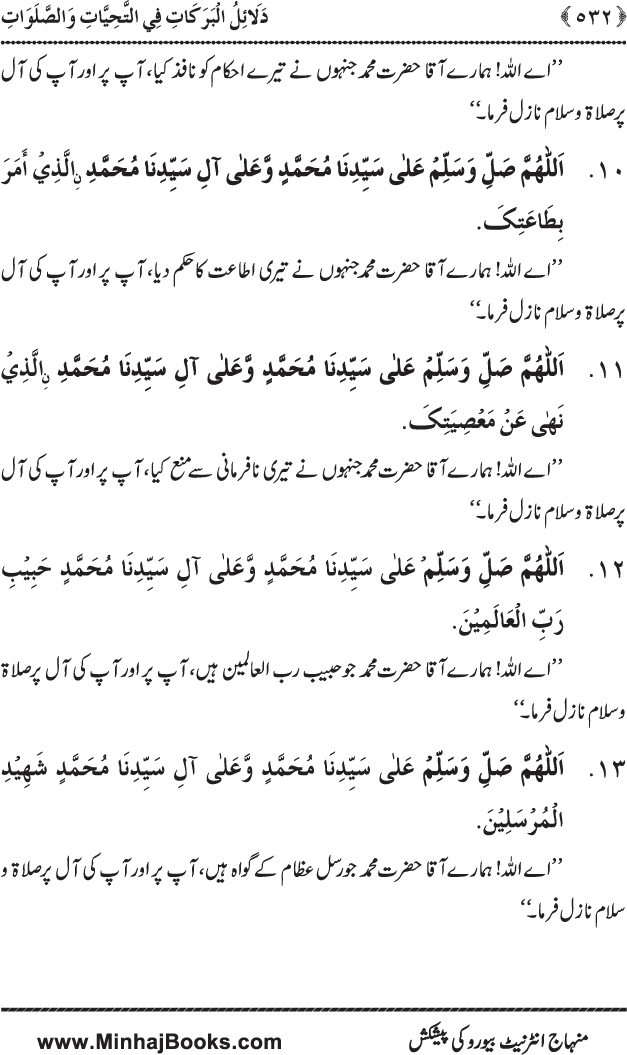 ﴿۵۳۲﴾ دَلَائِلُ الْبَرَكَاتِ فِي التَّحِيَّاتِ وَالصَّلَوَاتِ
’’اے اللہ! ہمارے آقا حضرت محمد جنہوں نے تیرے احکام کو نافذ کیا، آپ پر اور آپ کی آل
پر صلاۃ و سلام نازل فرما۔‘‘
۱۰. اَللّٰهُمَّ صَلِّ وَسَلِّمْ عَلٰی سَیِّدِنَا مُحَمَّدٍ وَّعَلٰی آلِ سَیِّدِنَا مُحَمَّدِ نِ الَّذِيْ أَمَرَ
بِطَاعَتِکَ.
’’اے اللہ! ہمارے آقا حضرت محمد جنہوں نے تیری اطاعت کا حکم دیا، آپ پر اور آپ کی آل
پر صلاۃ و سلام نازل فرما۔‘‘
۱۱. اَللّٰهُمَّ صَلِّ وَسَلِّمْ عَلٰی سَیِّدِنَا مُحَمَّدٍ وَّعَلٰی آلِ سَیِّدِنَا مُحَمَّدِ نِ الَّذِيْ
نَهٰی عَنْ مَعْصِیَتِکَ.
’’اے اللہ! ہمارے آقا حضرت محمد جنہوں نے تیری نافرمانی سے منع کیا، آپ پر اور آپ کی آل
پر صلاۃ و سلام نازل فرما۔‘‘
۱۲. اَللّٰهُمَّ صَلِّ وَسَلِّمْ عَلٰی سَیِّدِنَا مُحَمَّدٍ وَّعَلٰی آلِ سَیِّدِنَا مُحَمَّدٍ حَبِیْبِ
رَبِّ الْعَالَمِیْنَ.
’’اے اللہ! ہمارے آقا حضرت محمد جو حبیب رب العالمین ہیں، آپ پر اور آپ کی آل پر صلاۃ
و سلام نازل فرما۔‘‘
۱۳. اَللّٰهُمَّ صَلِّ وَسَلِّمْ عَلٰی سَیِّدِنَا مُحَمَّدٍ وَّعَلٰی آلِ سَیِّدِنَا مُحَمَّدٍ شَهِیْدِ
الْمُرْسَلِیْنَ.
’’اے اللہ! ہمارے آقا حضرت محمد جو رسل عظام کے گواہ ہیں، آپ پر اور آپ کی آل پر صلاۃ و
سلام نازل فرما۔‘‘
منہاج انٹرنیٹ بیورو کی پیشکش www.MinhajBooks.com